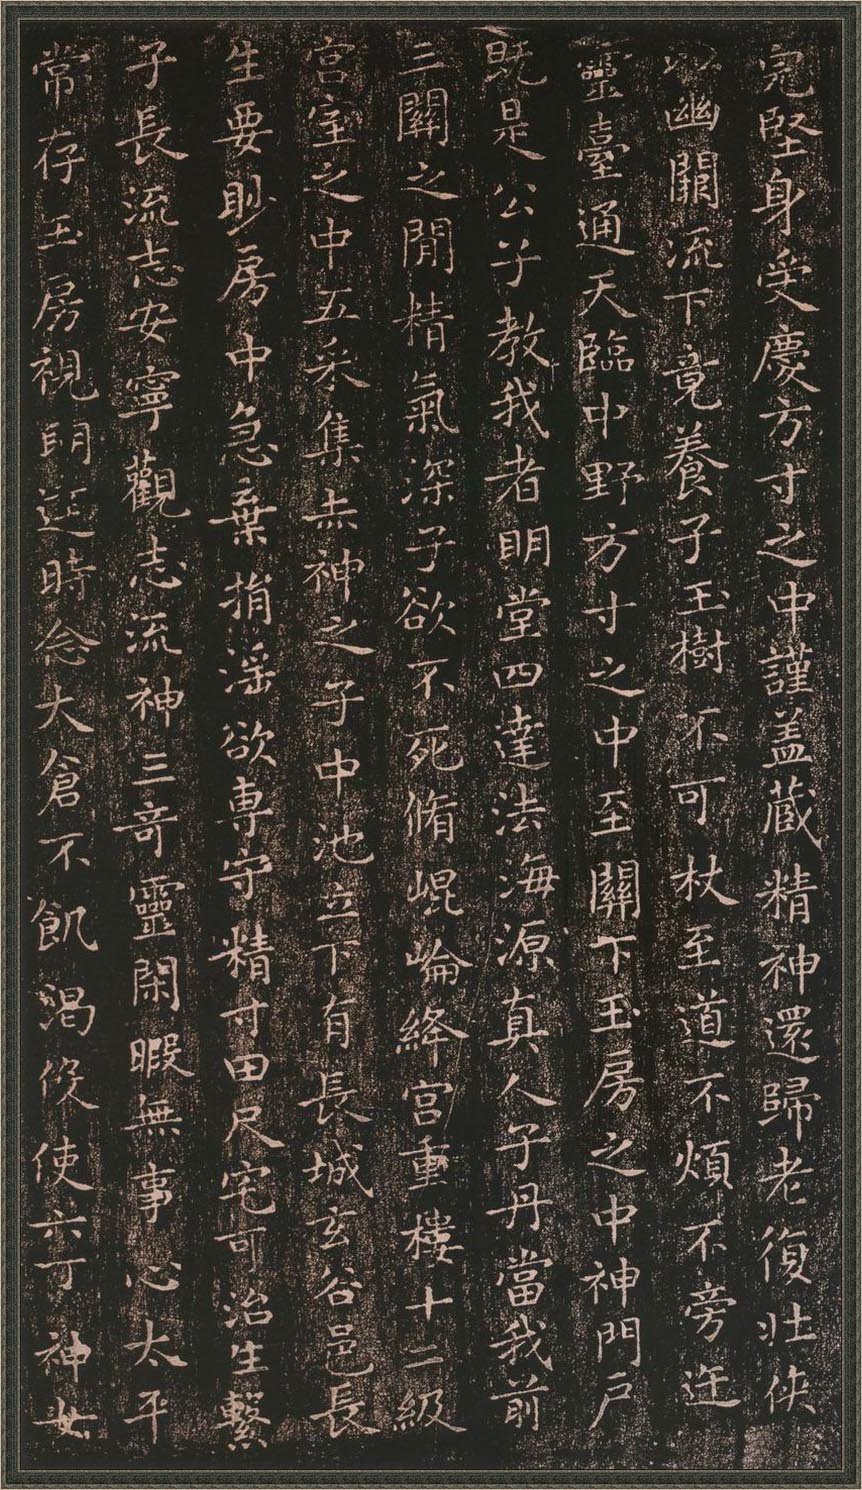 完堅身受慶方寸之中謹盖藏精神還歸老復壯俠
以幽關流下竟養子玉樹不可杖至道不煩不旁迕
靈臺通天臨中野方寸之中至關下玉房之中神門戶
既是公子教我者明堂四達法海源真人子丹當我前
三關之閒精氣深子欲不死脩崐崘絳宮重樓十二級
宮室之中五采集赤神之子中池立下有長城玄谷邑長
生要眇房中急棄捐淫欲専守精寸田尺宅可治生繫
子長流志安寧觀志流神三奇靈閑暇無事心太平
常存玉房視明逹時念大倉不飢渴伇使六丁神女